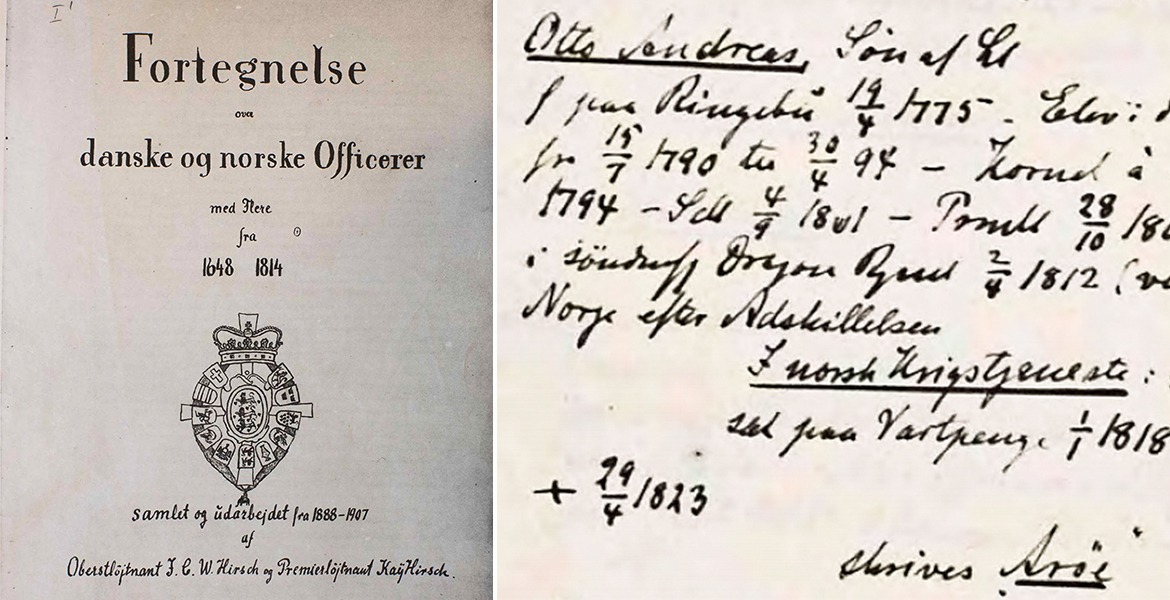 I
Fortegnelse
over
danske og norske Officerer
med Flere
fra
1648 1814
samlet og udarbejdet fra 1888-1907
af
Oberstlöjtnant J. C. W. Hirsch og Premierlöjtnant Kaÿ Hirsch.
Otto Andreas, Søn af Lt
f paa Ringebu 19/4 1775 - Elev i
fra 15/7 1790 til 30/4 94 - Kornet à
1794 - Sclt 4/9 1801 - Prmlt 28/10
i söndenfj Dragon Rgmt 2/4 1812 (
Norge efter Adskillelsen
I norsk Krigstjeneste :
sat paa Vartpenge 1/1 1818
+ 29/4 1823
skrives "Aröe"